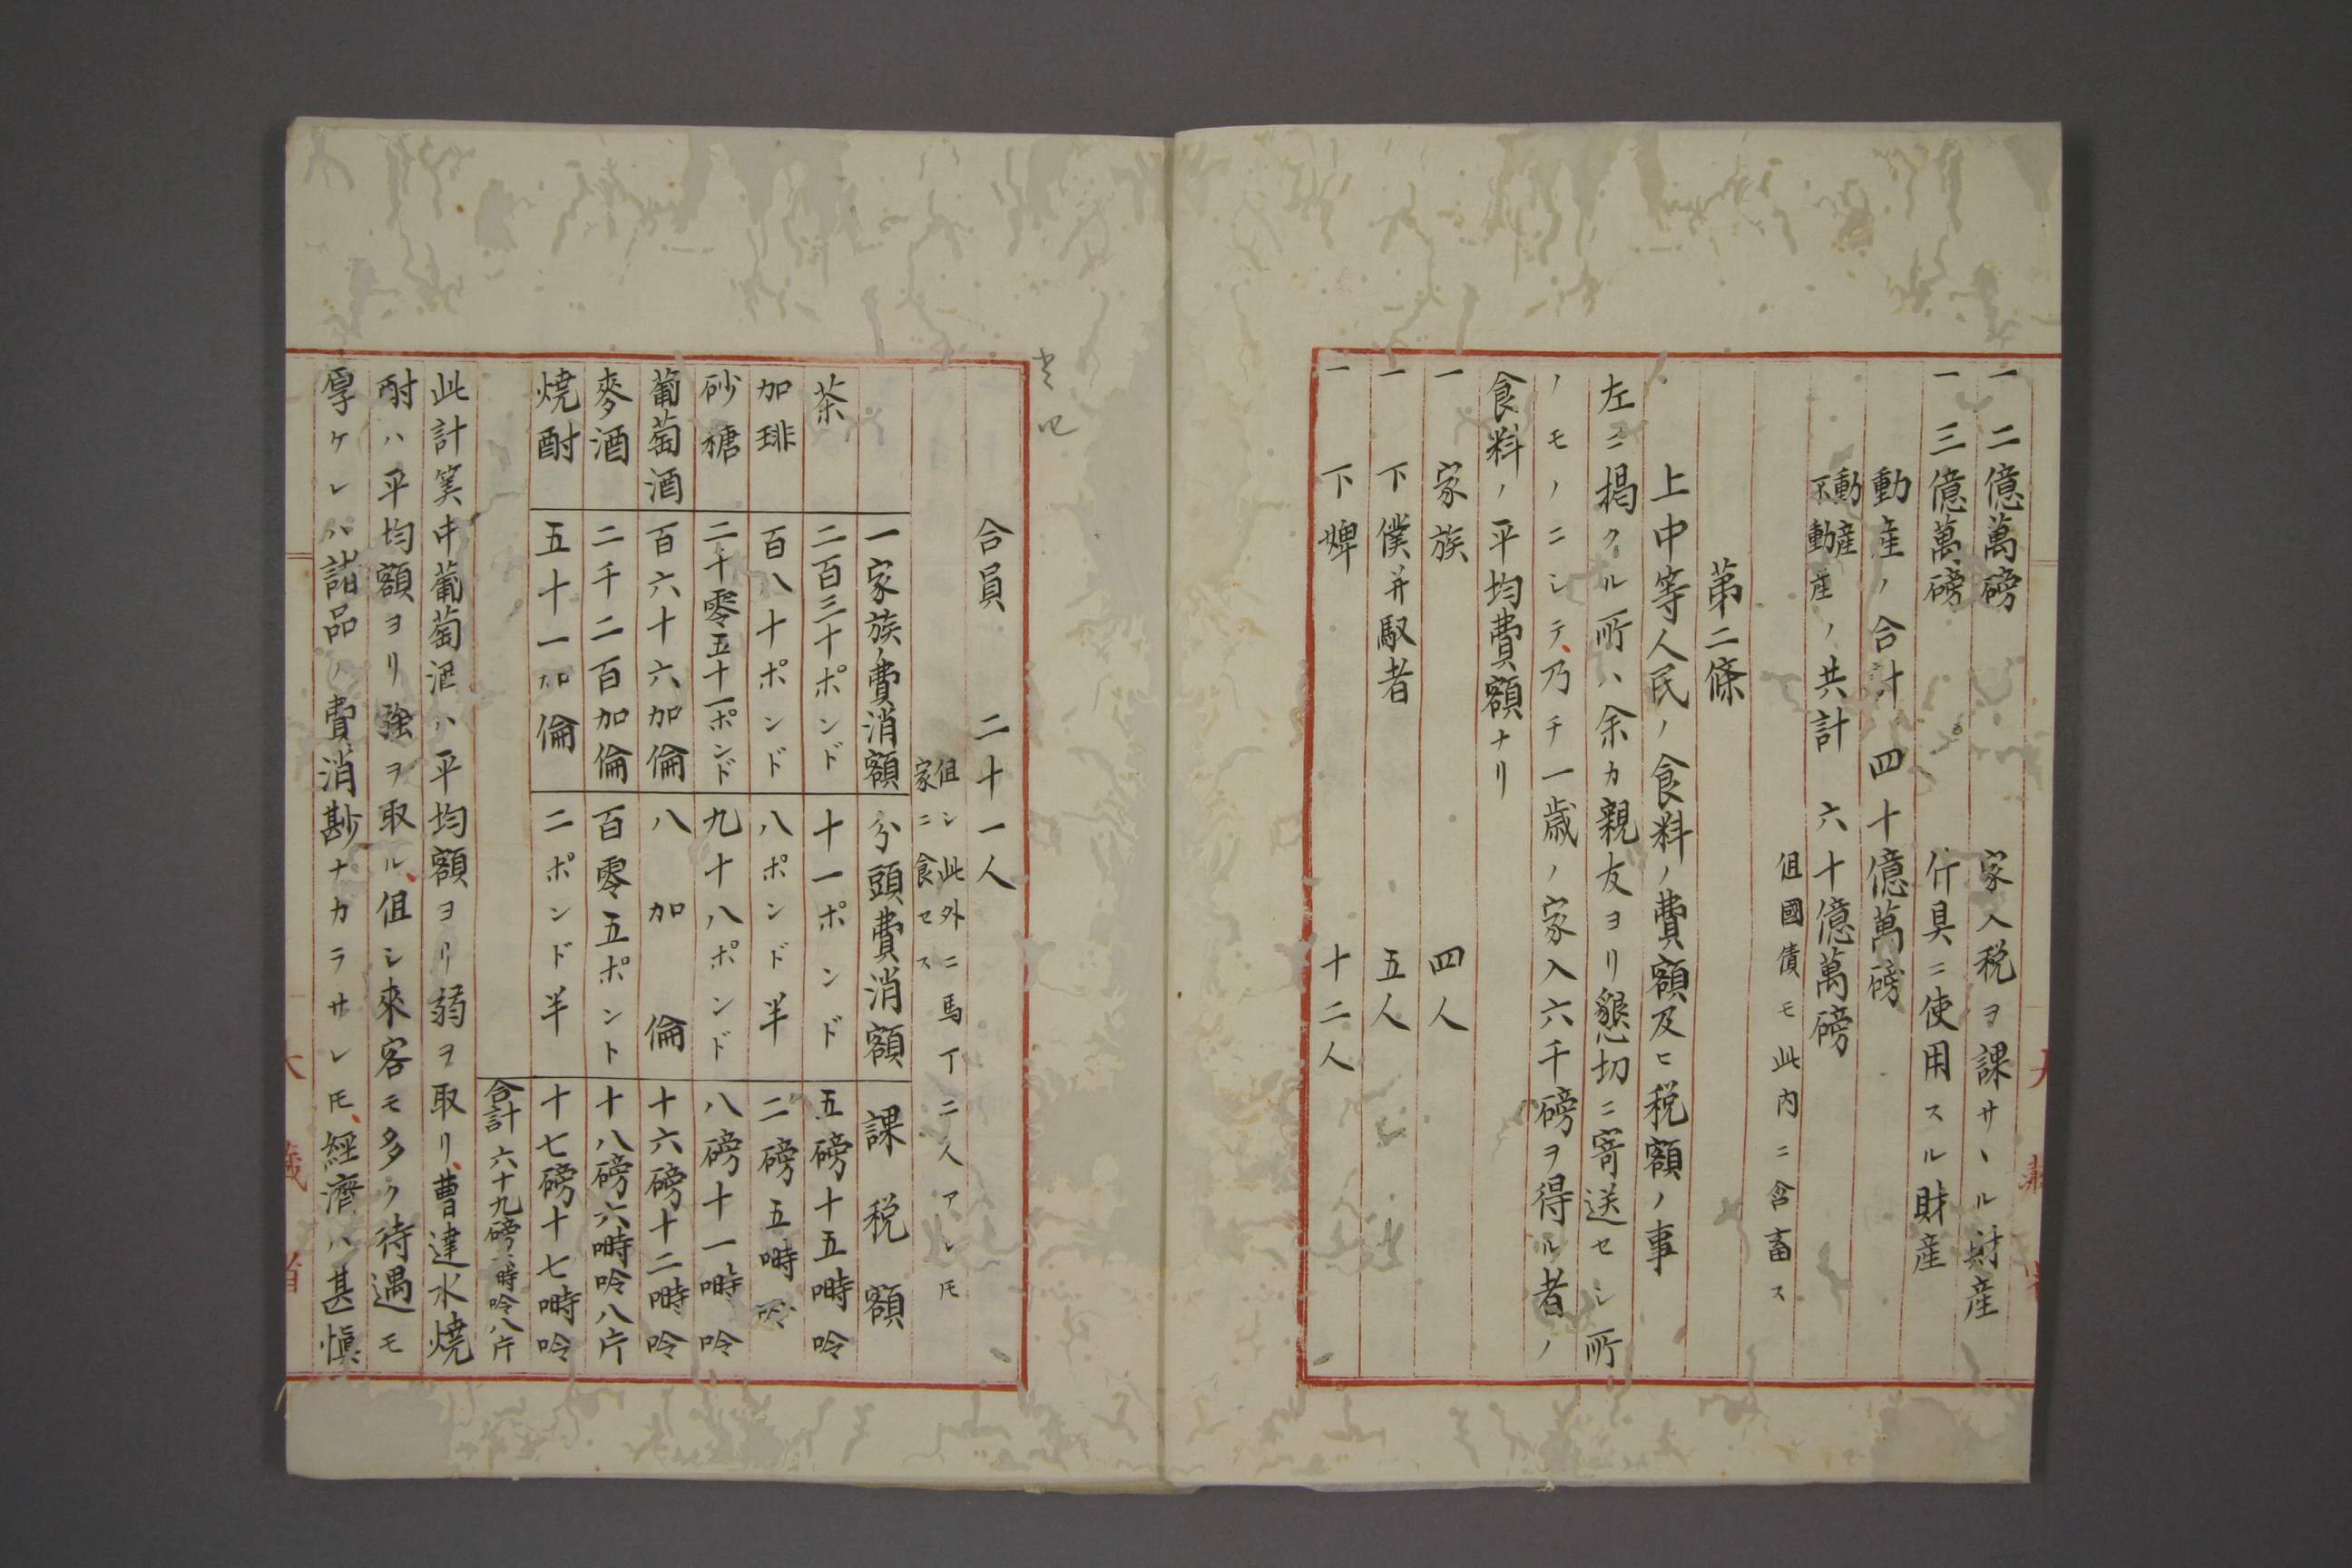 一二億萬磅 家入税ヲ課サヽル財産
一三億萬磅 什具ニ使用スル財産
動産ノ合計 四十億萬磅
動産不動産ノ共計 六十億萬磅
但國債モ此内ニ含畜ス
第二條
上中等人民ノ食料ノ費額及ヒ税額ノ事
左ニ掲クル所ハ余カ親友ヨリ懇切ニ寄送セシ所
ノモノニシテ、乃チ一歳ノ家入六千磅ヲ得ル者ノ
食料ノ平均費額ナリ
一 家族 四人
一 下僕并馭者 五人
一 下婢 十二人
合員 二十一人
但シ此外ニ馬丁二人アレ𪜈
家ニ食セス
一家族ノ費消額 分頭費消額 課税額
茶 二百三十ポンド 十一ポンド 五磅十五㖷呤
加琲 百八十ポンド 八ポンド半 二磅五㖷呤
砂糖 二千零五十一ポンド 九十八ポンド 八磅十一㖷呤
葡萄酒 百六十六加倫 八加倫 十六磅十二㖷呤
麥酒 二千二百加倫 百零五ポント 十八磅六㖷呤八片
焼酎 五十一加倫 二ポンド半 十七磅十七㖷呤
合計 六十九磅 㖷呤八片
此計筭中葡萄酒ハ平均額ヨリ弱ヲ取リ、曹達水焼
酎ハ平均額ヨリ強ヲ取ル、但シ來客モ多ク待遇モ
厚ケレハ諸品ノ費消尠ナカラサレ𪜈、經濟ハ甚愼